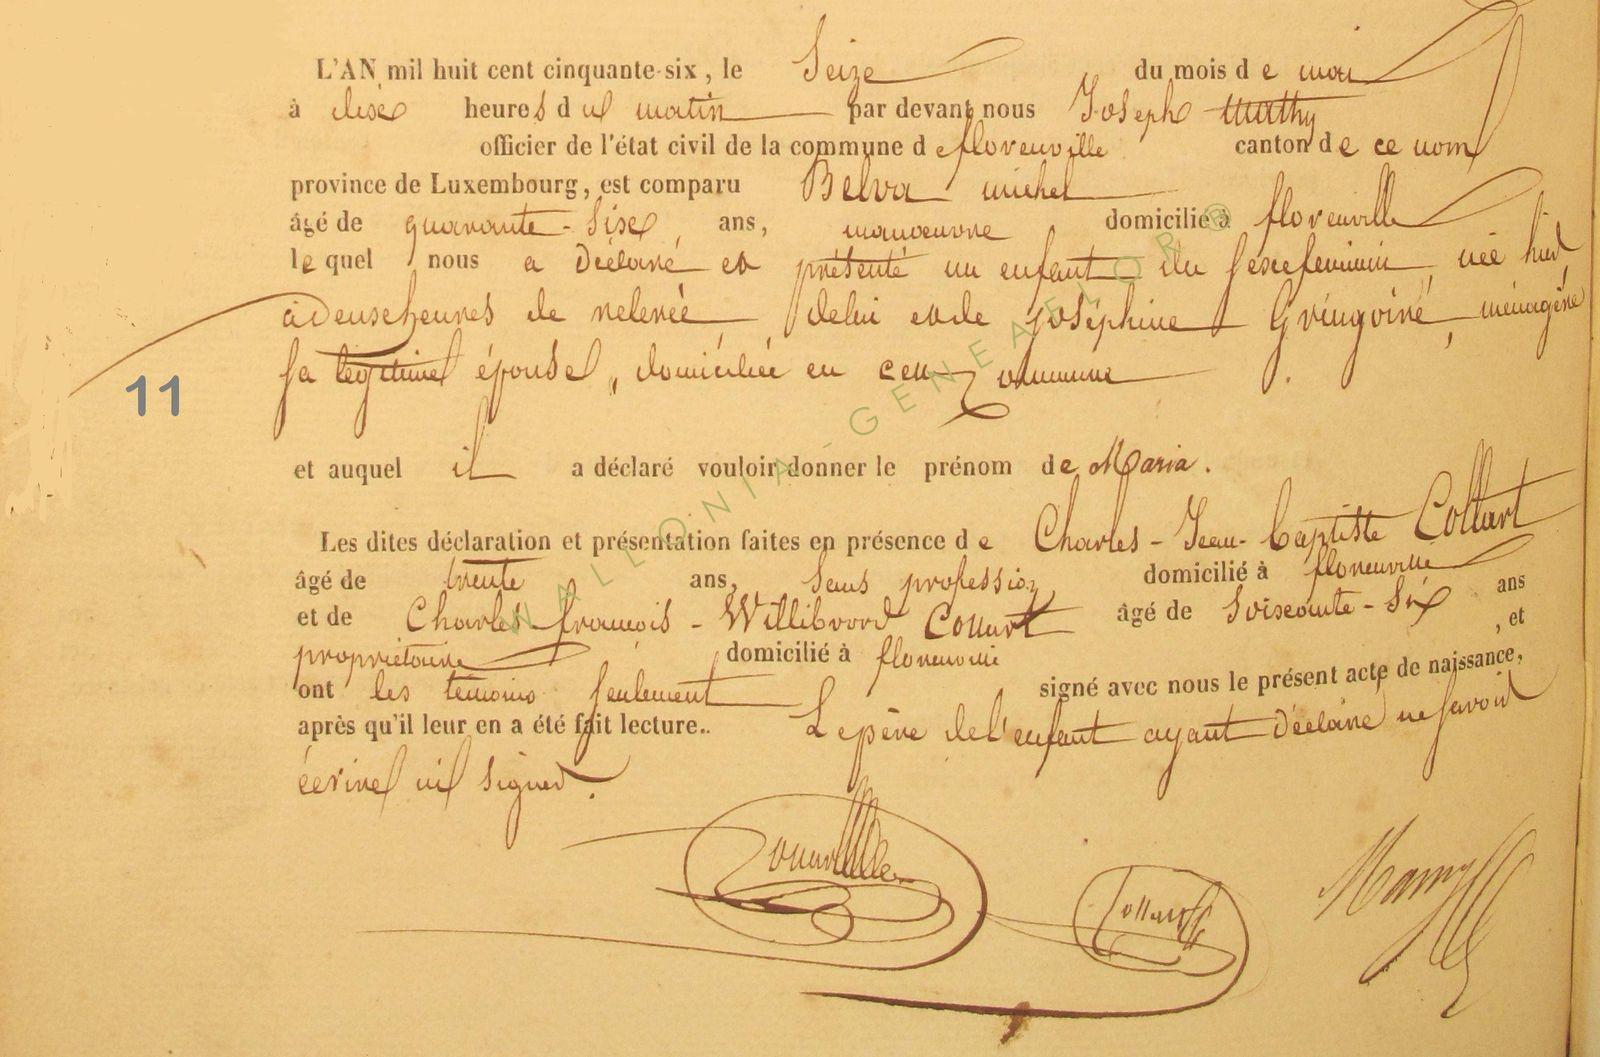 L'AN mil huit cent cinquante-six, le Seize du mois de mai
à dix heures du matin par devant nous Joseph Mathy
officier de l'état civil de la commune de florenville canton de ce nom
province de Luxembourg, est comparu Belva michel
âgé de quarante-six ans, manoeuvre domicilié à florenville
lequel nous a déclaré et présenté un enfant du sexe feminin, née hier
à deux heures de relevée, de lui et de joséphine Gringoiré, ménagère
sa légitime épouse, domiciliée en cette commune
11
et auquel il a déclaré vouloir donner le prénom de Maria.
Les dites déclaration et présentation faites en présence de Charles-Jean-Baptiste Collart
âgé de trente ans, sans profession domicilié à florenville
et de Charles-françois-Willibrord Collart âgé de soixante-six ans
propriétaire, domicilié à florenville, et
ont les témoins seulement signé avec nous le présent acte de naissance,
après qu'il leur en a été fait lecture.. Le père de l'enfant ayant déclaré ne savoir
écrire ni signer.
Collart
WALLONIA-GENEAFLOR®